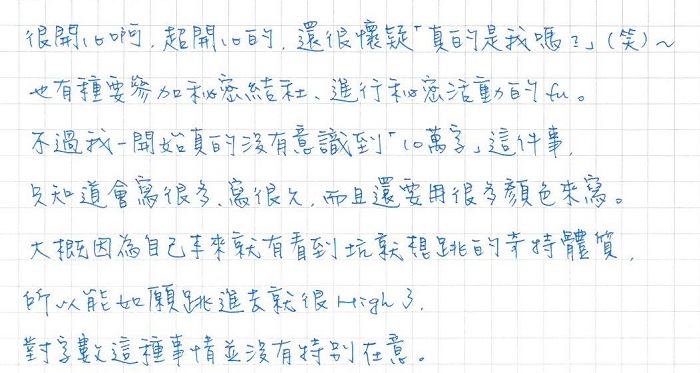 很開心啊，超開心的，還很懷疑「真的是我嗎？」（笑）～
也有種要參加秘密結社、進行秘密活動的fu。
不過我一開始真的沒有意識到「10萬字」這件事，
只知道會寫很多、寫很久，而且還要用很多顏色來寫。
大概因為自己本來就有看到坑就想跳的奇特體質，
所以能如願跳進去就很High了，
對字數這種事情並沒有特別在意。